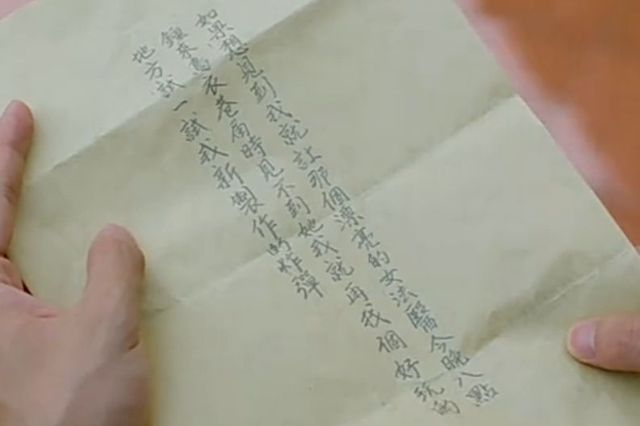 如果想見到我就让那個漂亮的女法醫今晚八點
鐘來烏衣巷届時見不到她我就再找個好玩的
地方試一試我新製作的炸彈